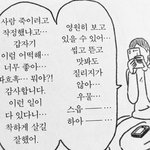 사람 죽이려고
작정했냐고…
갑자기
이럼 어떡해…
너무 좋아…
뭐야?!
감사합니다.
이런 일이
다 있다니…
착하게 살길
잘했어.
영원히 보고
있을 수 있어…
씹고 뜯고
맛봐도
질리지가
않아…
우물…
스읍 ——
하아 ——